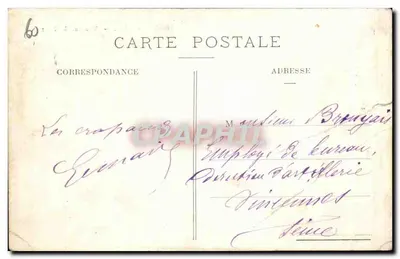 60
CARTE POSTALE
CORRESPONDANCE
ADRESSE
Les crapauds
Monsieur
employé de bureau,
Direction d'artillerie
Vincennes
Seine